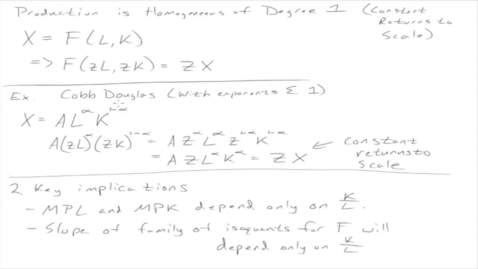 Production is Homogeneous of Degree 1 (Constant Returns to Scale)
X = F(L,K)
=> F(zL, zK) = ZX
Ex. Cobb Douglas (With exponents Σ 1)
X = AL^αK^1-α
A(zL)^α(zK)^1-α = A z^αL^α z^1-αK^1-α
= A Z L^αK^α = ZX
Constant returns to Scale
2 Key implications
- MPL and MPK depend only on K/L.
- Slope of family of isoquants for F will
depend only on K/L